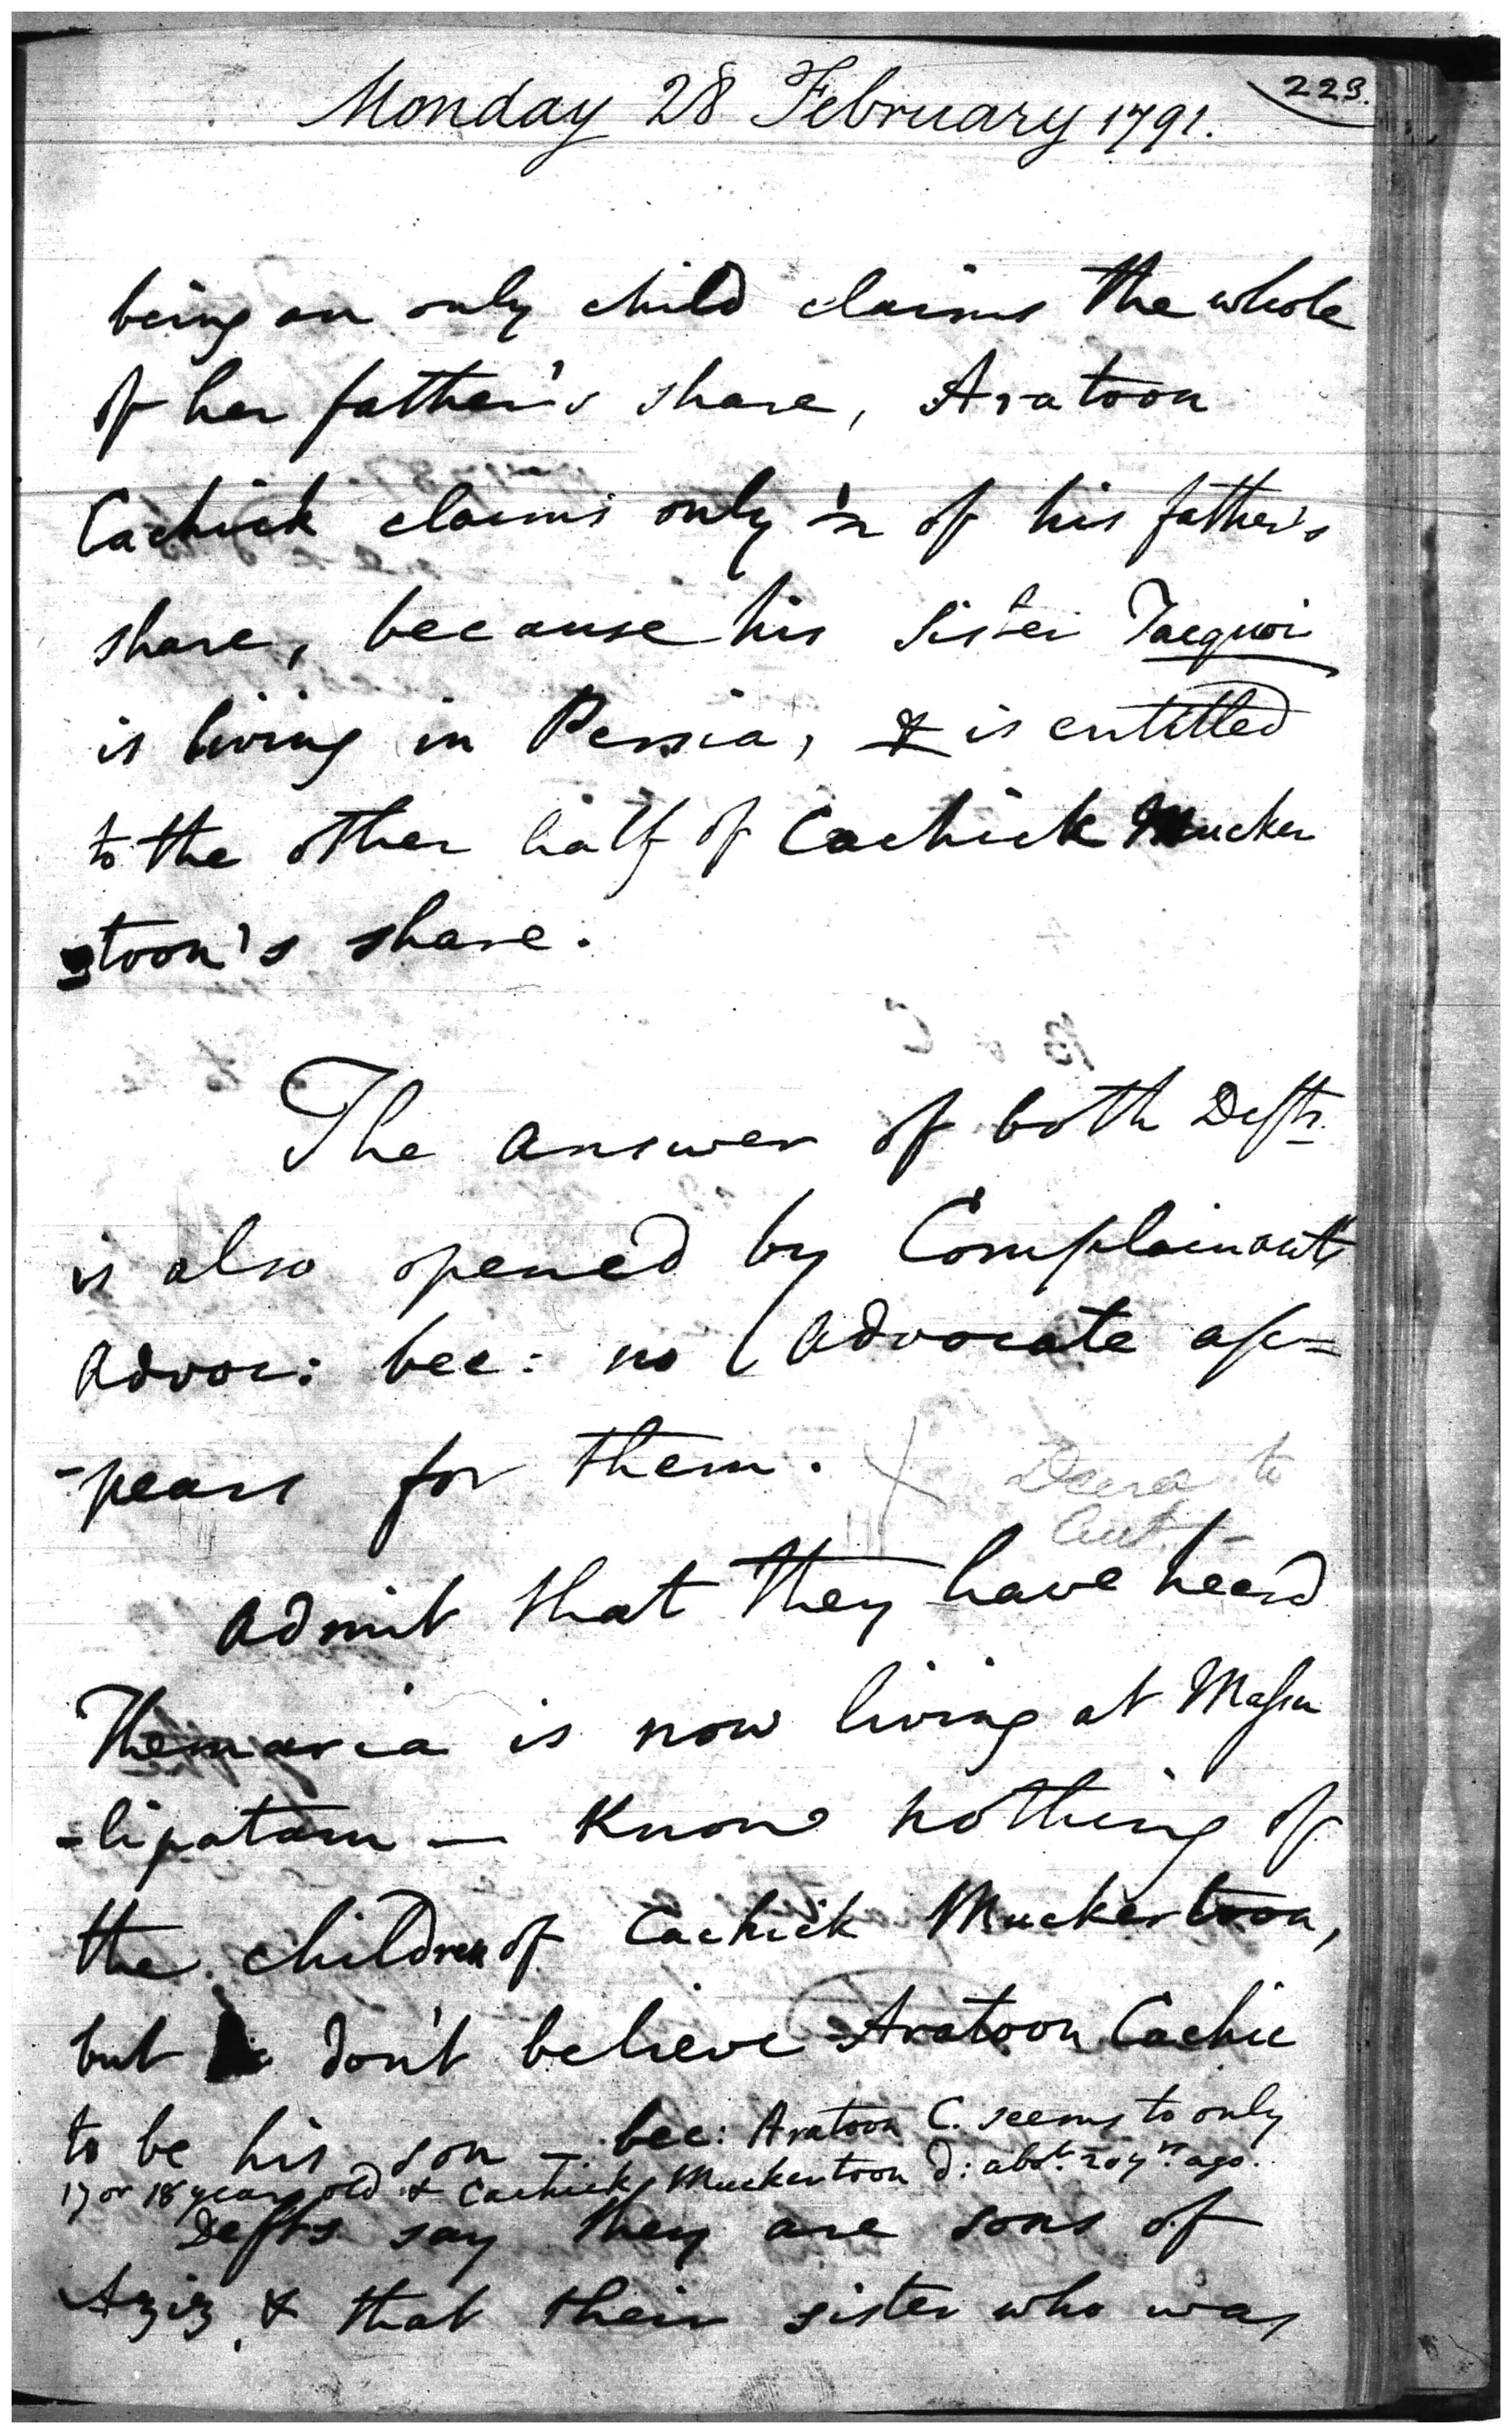 223.
Monday 28 February 1791.
being an only child claims the whole
of her father's share, Aratoon
Cachick claims only ½ of his father's
share, because his sister Tacquoi
is living in Persia, & is entitled
to the other half of Cachick Mucker
=toon's share.
The answer of both Defts.
is also opened by Complainants
Advoc: bec: no Advocate ap=
-pears for them.
Admit that they have heard
Themaria is now living at Massu
=lipatam — Know nothing of
the children of Cachick Muckertoon,
but don't believe Aratoon Cachic
to be his son — bec: Aratoon C. seems to only
17 or 18 years old & Cachick Muckertoon d: abt. 20 yrs. ago.
Defts say they are sons of
Aziz & that their sister who was